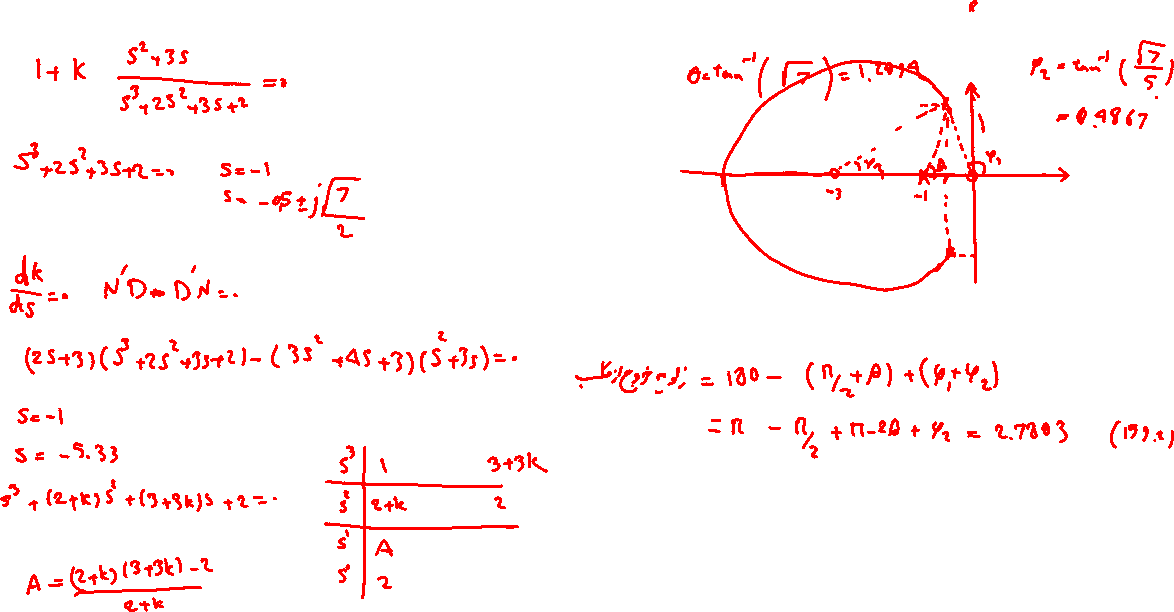 1 + k (s² + 3s) / (s³ + 2s² + 3s + 2) = 0
s³ + 2s² + 3s + 2 = 0
s = -1
s = -0.5 ± j √7 / 2
dk/ds = 0 N'D - D'N = 0
(2s+3)(s³ + 2s² + 3s + 2) - (3s² + 4s + 3)(s² + 3s) = 0
s = -1
s = -5.33
s³ + (2+k)s² + (3+3k)s + 2 = 0
A = ((2+k)(3+3k) - 2) / (2+k)
s³ | 1 3+3k
s² | 2+k 2
s¹ | A
s⁰ | 2
θ = tan⁻¹(√7) = 1.2094
φ₂ = tan⁻¹(√7/5)
= 0.4867
-3 φ₂ -1 θ φ₁
= 180 - (π/2 + θ) + (φ₁ + φ₂)
= π - π/2 + π - 2θ + φ₂ = 2.7803